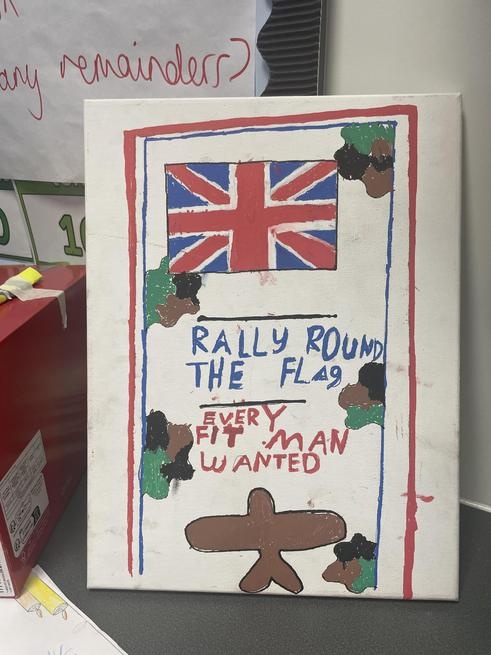 any remainders)
10
RALLY ROUND
THE FLAg
EVERY
FIT MAN
WANTED